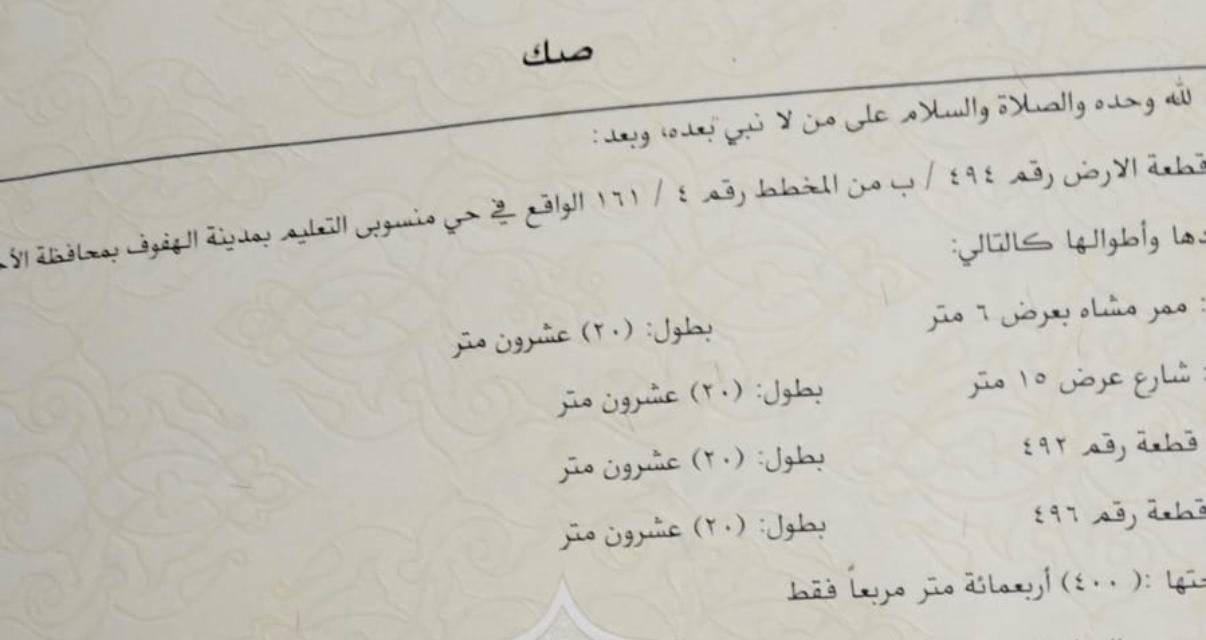 صك
لله وحده والصلاة والسلام على من لا نبي بعده، وبعد:
قطعة الارض رقم ٤٩٤ / ب من المخطط رقم ٤ / ١٦١ الواقع في حي منسوبى التعليم بمدينة الهفوف بمحافظة الأح
دها وأطوالها كالتالي:
: ممر مشاه بعرض ٦ متر بطول: (٢٠) عشرون متر
: شارع عرض ١٥ متر بطول: (٢٠) عشرون متر
قطعة رقم ٤٩٢ بطول: (٢٠) عشرون متر
قطعة رقم ٤٩٦ بطول: (٢٠) عشرون متر
حتها :( ٤٠٠) أربعمائة متر مربعاً فقط